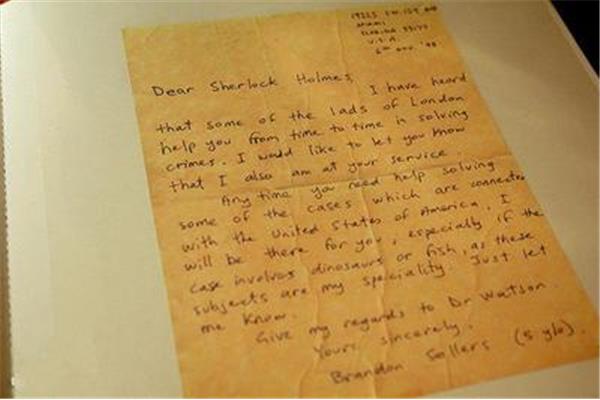 MIAMI
FLORIDA
U.S.A.
Dear Sherlock Holmes,
I have heard
that some of the lads of London
help you from time to time in solving
crimes. I would like to let you know
that I also am at your service
Any time you need help solving
some of the cases which are connected
with the United States of America, I
will be there for you, especially if the
case involves dinosaurs or fish, as these
subjects are my speciality. Just let
me know.
Give my regards to Dr Watson.
Yours sincerely,
Brandon Sollers (5 y/o).